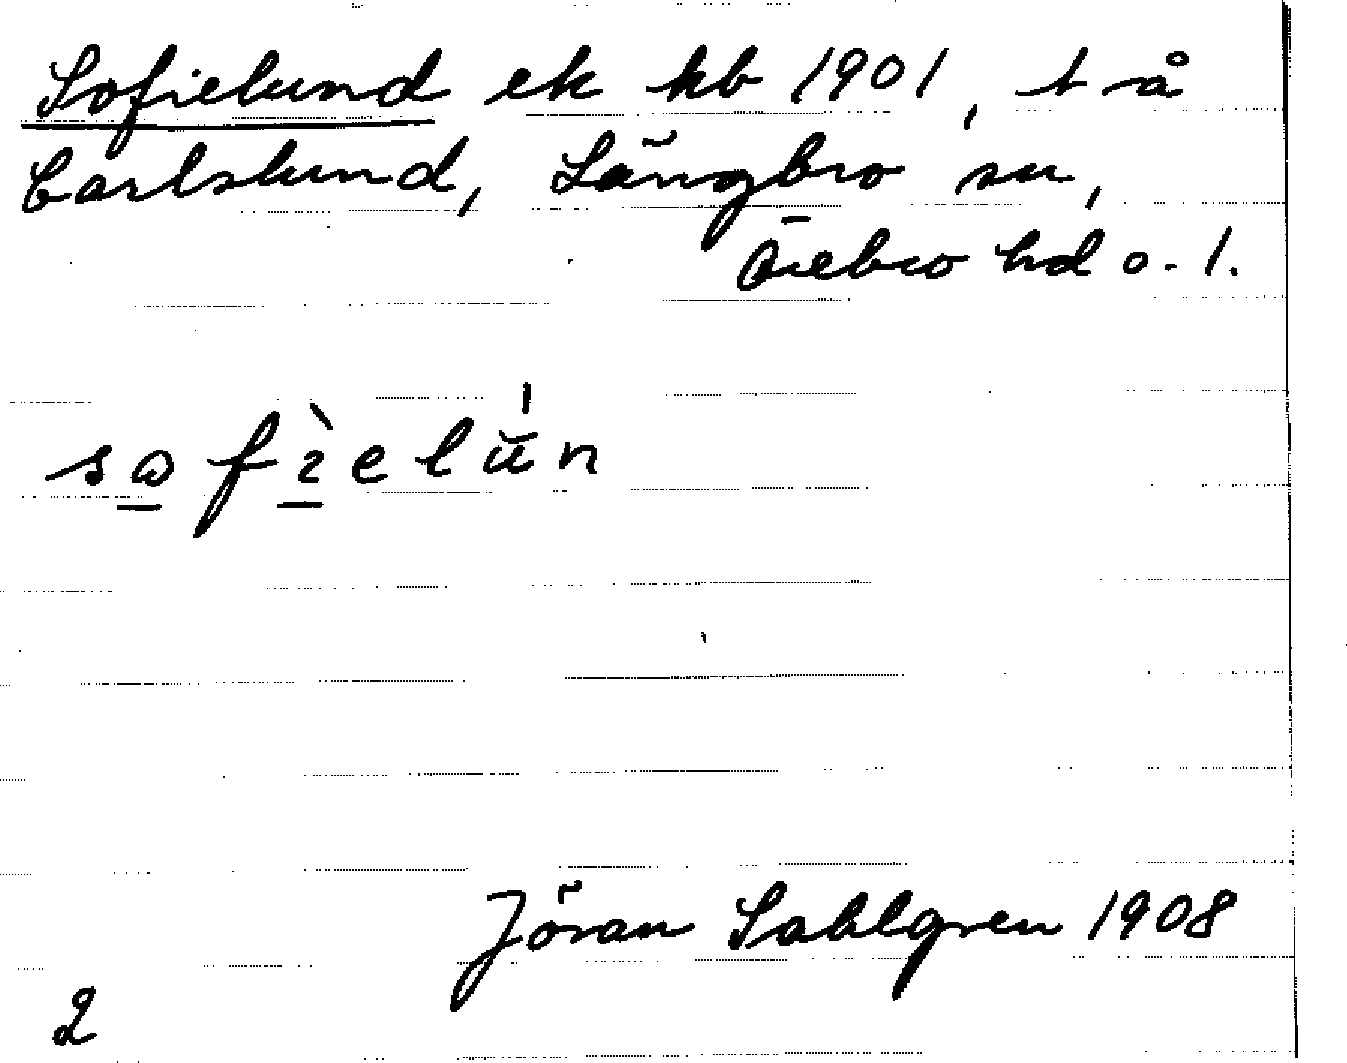 Sofielund ek kb 1901, t å
Carlslund, Längbro sn,
Örebro hd o. l.
sɷfìelu̇́n
Jöran Sahlgren 1908
2